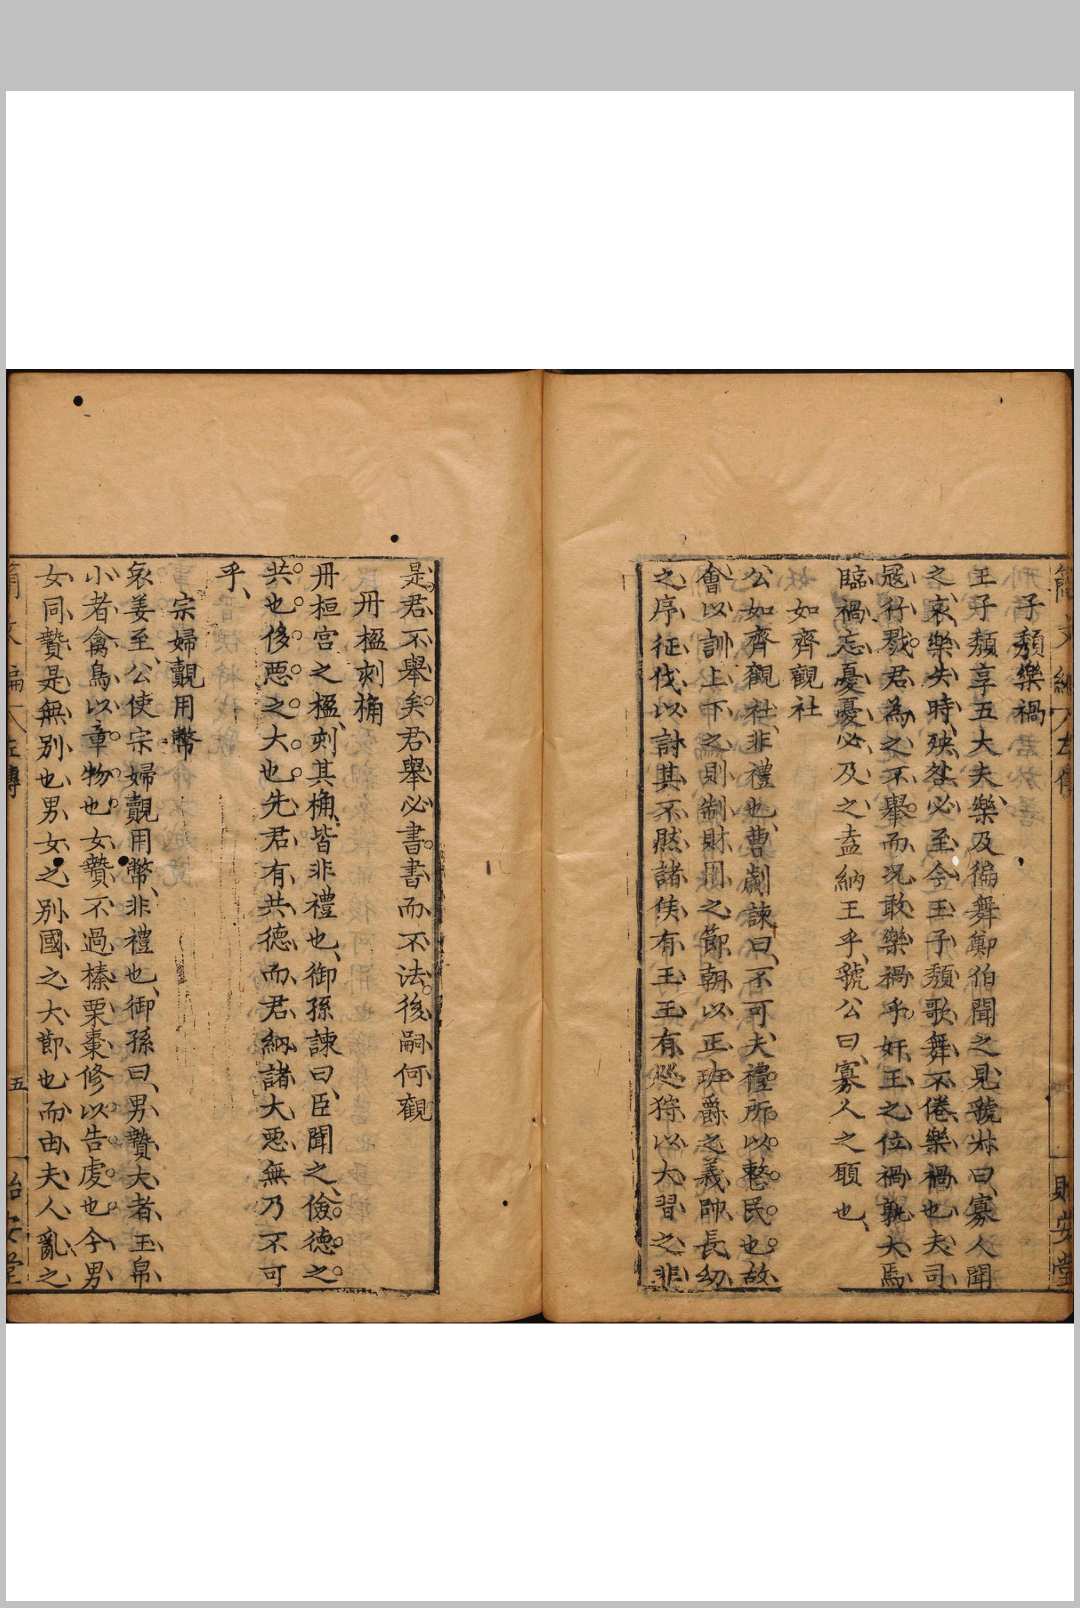 子頽樂禍
王子頽享五大夫樂及徧舞鄭伯聞之見號叔曰寡人聞
之哀樂失時殃咎必至今王子頽歌舞不倦樂禍也夫司
冦行戮君為之不舉而况敢樂禍乎奸王之位禍孰大焉
臨禍忘憂憂必及之盍納王乎號公曰寡人之願也
如齊觀社
公如齊觀社非禮也曹劌諫曰不可夫禮所以整民也故
會以訓上下之則制財用之節朝以正班爵之義帥長幼
之序征伐以討其不然諸侯有王王有巡狩以大習之非
是君不舉矣君舉必書書而不法後嗣何觀
丹楹刻桷
丹桓宫之楹刻其桷皆非禮也御孫諫曰臣聞之儉德之
共也侈惡之大也先君有共德而君納諸大惡無乃不可
乎
宗婦覿用幣
哀姜至公使宗婦覿用幣非禮也御孫曰男贄大者玉帛
小者禽鳥以章物也女贄不過榛栗棗修以告虔也今男
女同贄是無别也男女之别國之大節也而由夫人亂之
左傳
五
治安堂